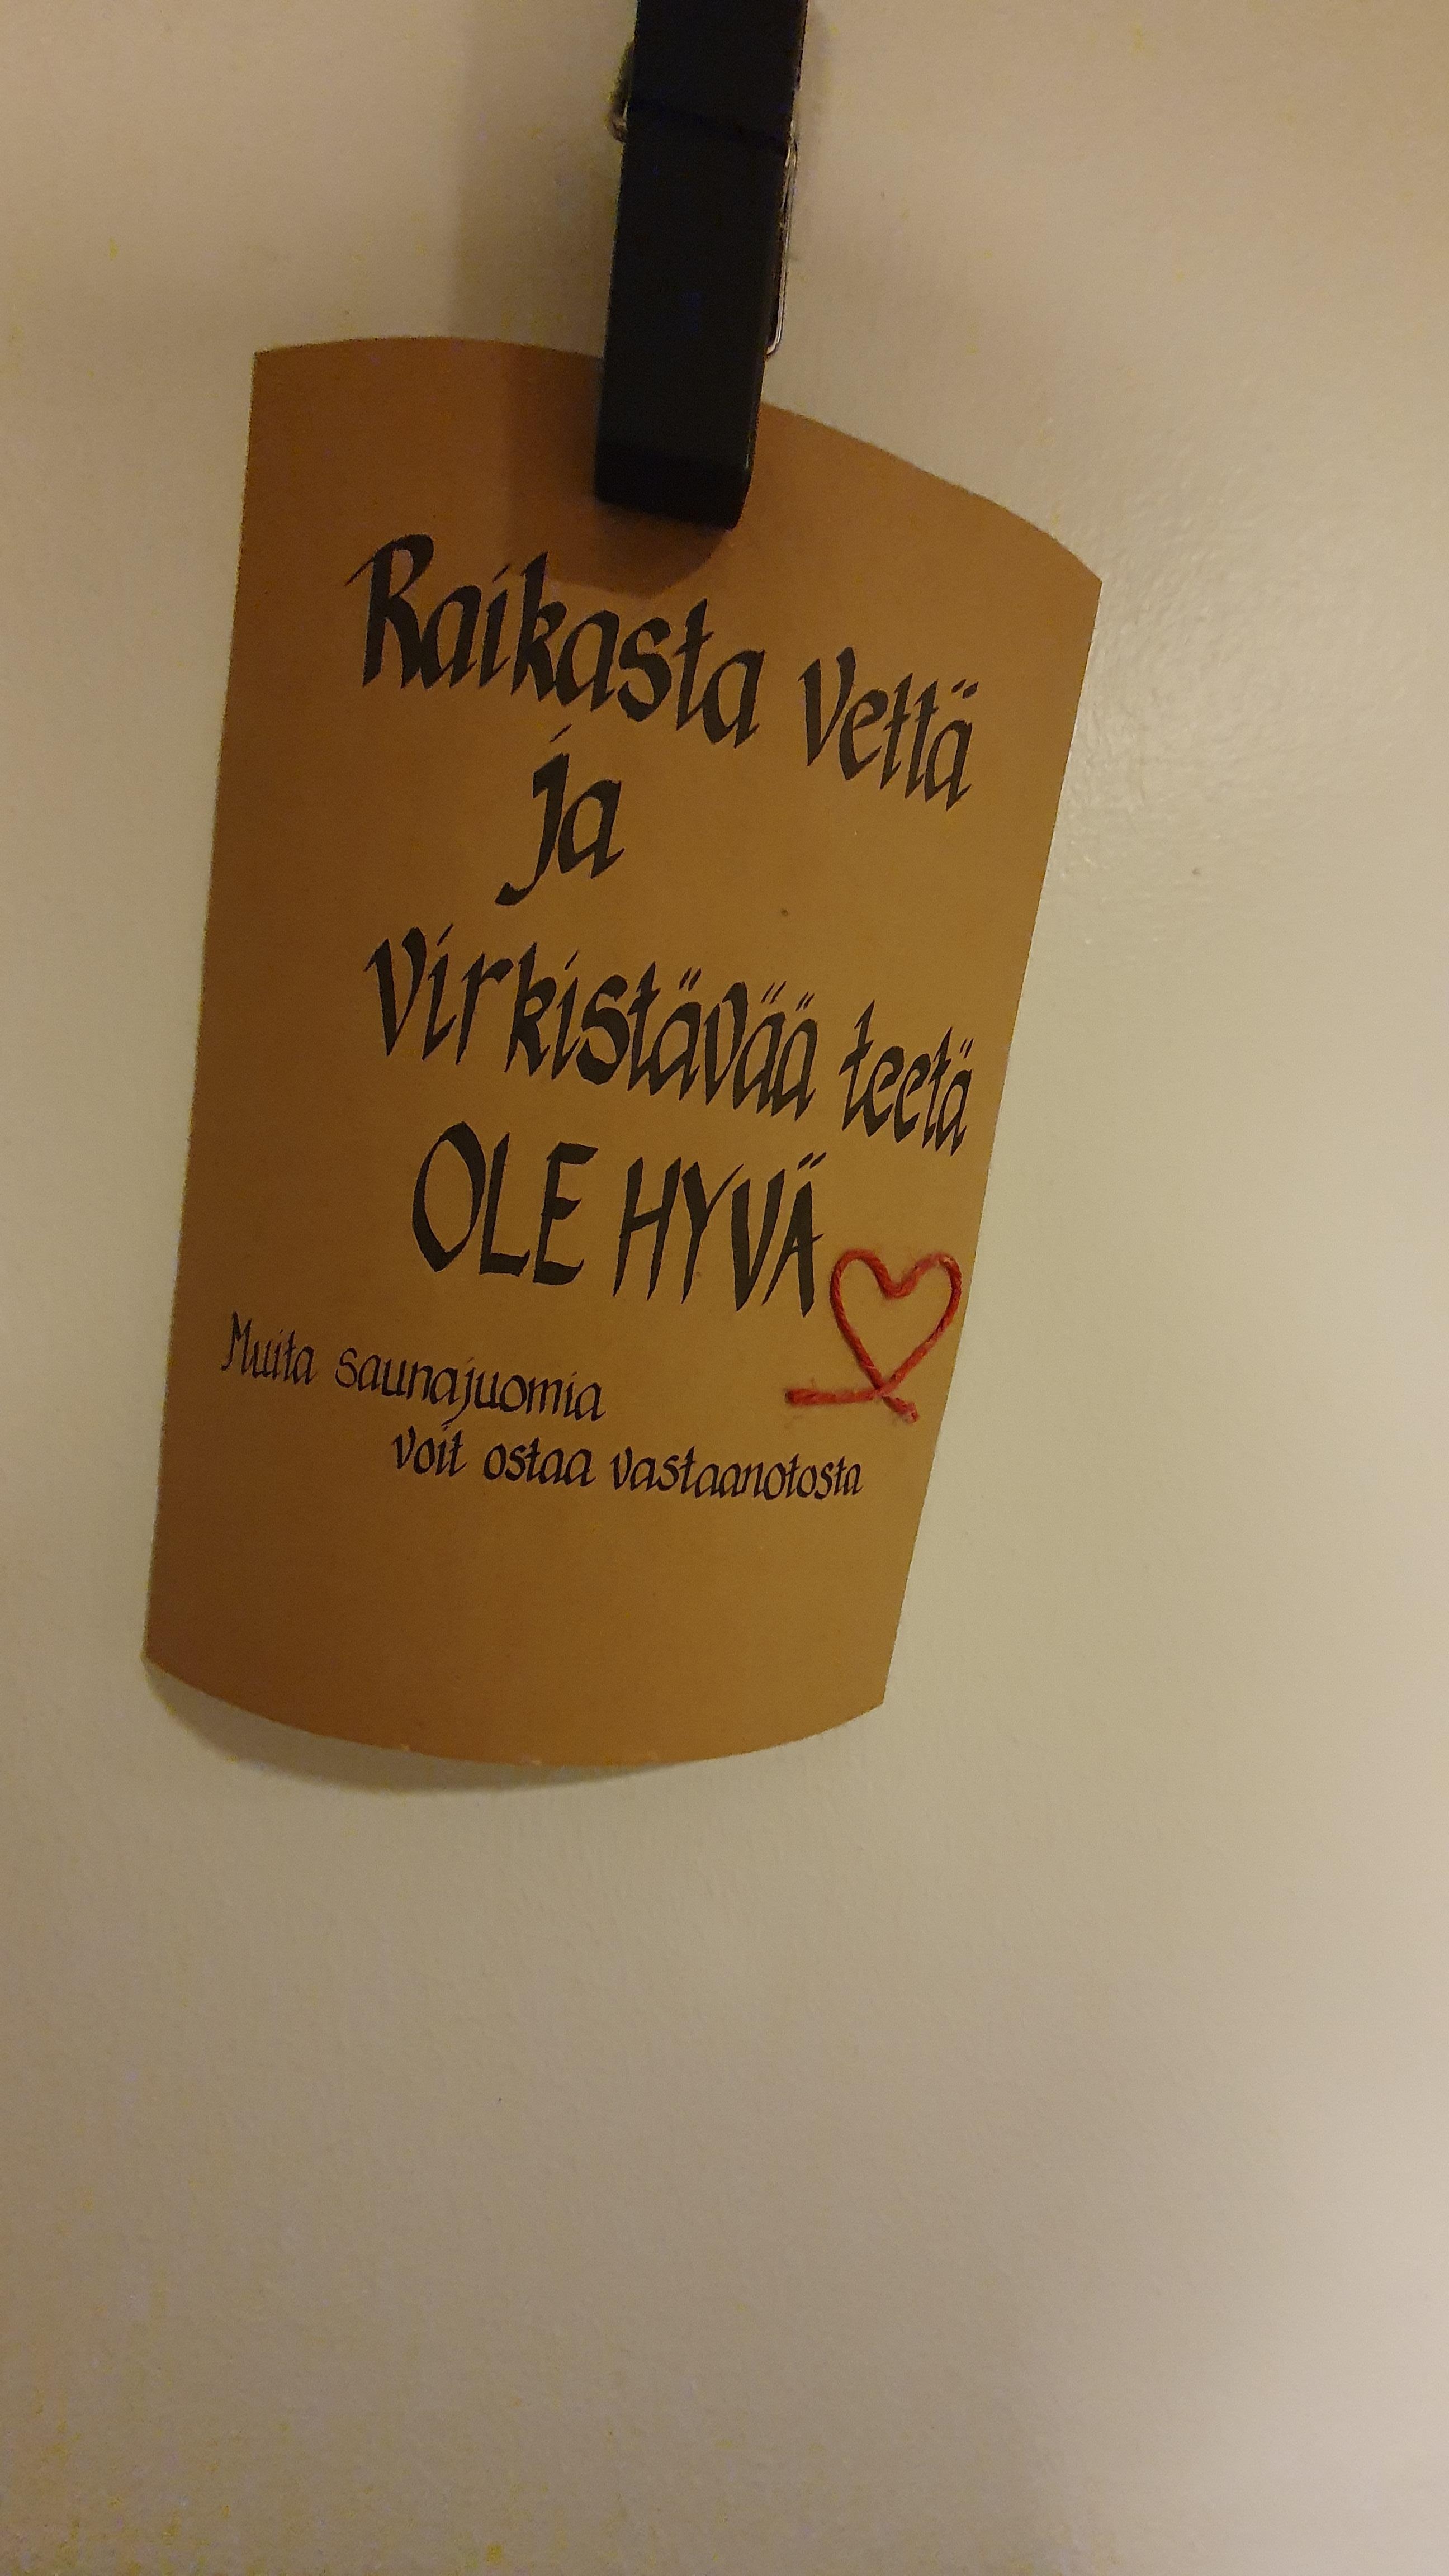 Raikasta vettä
ja
virkistävää teetä
OLE HYVÄ
Muita saunajuomia
voit ostaa vastaanotosta